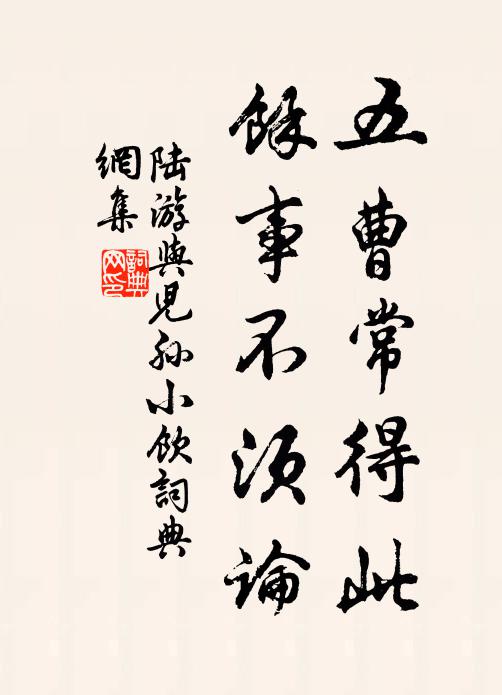 五曹常得此
餘事不須論
陸游與兒孫小飲詞典
網集
詞典
网印